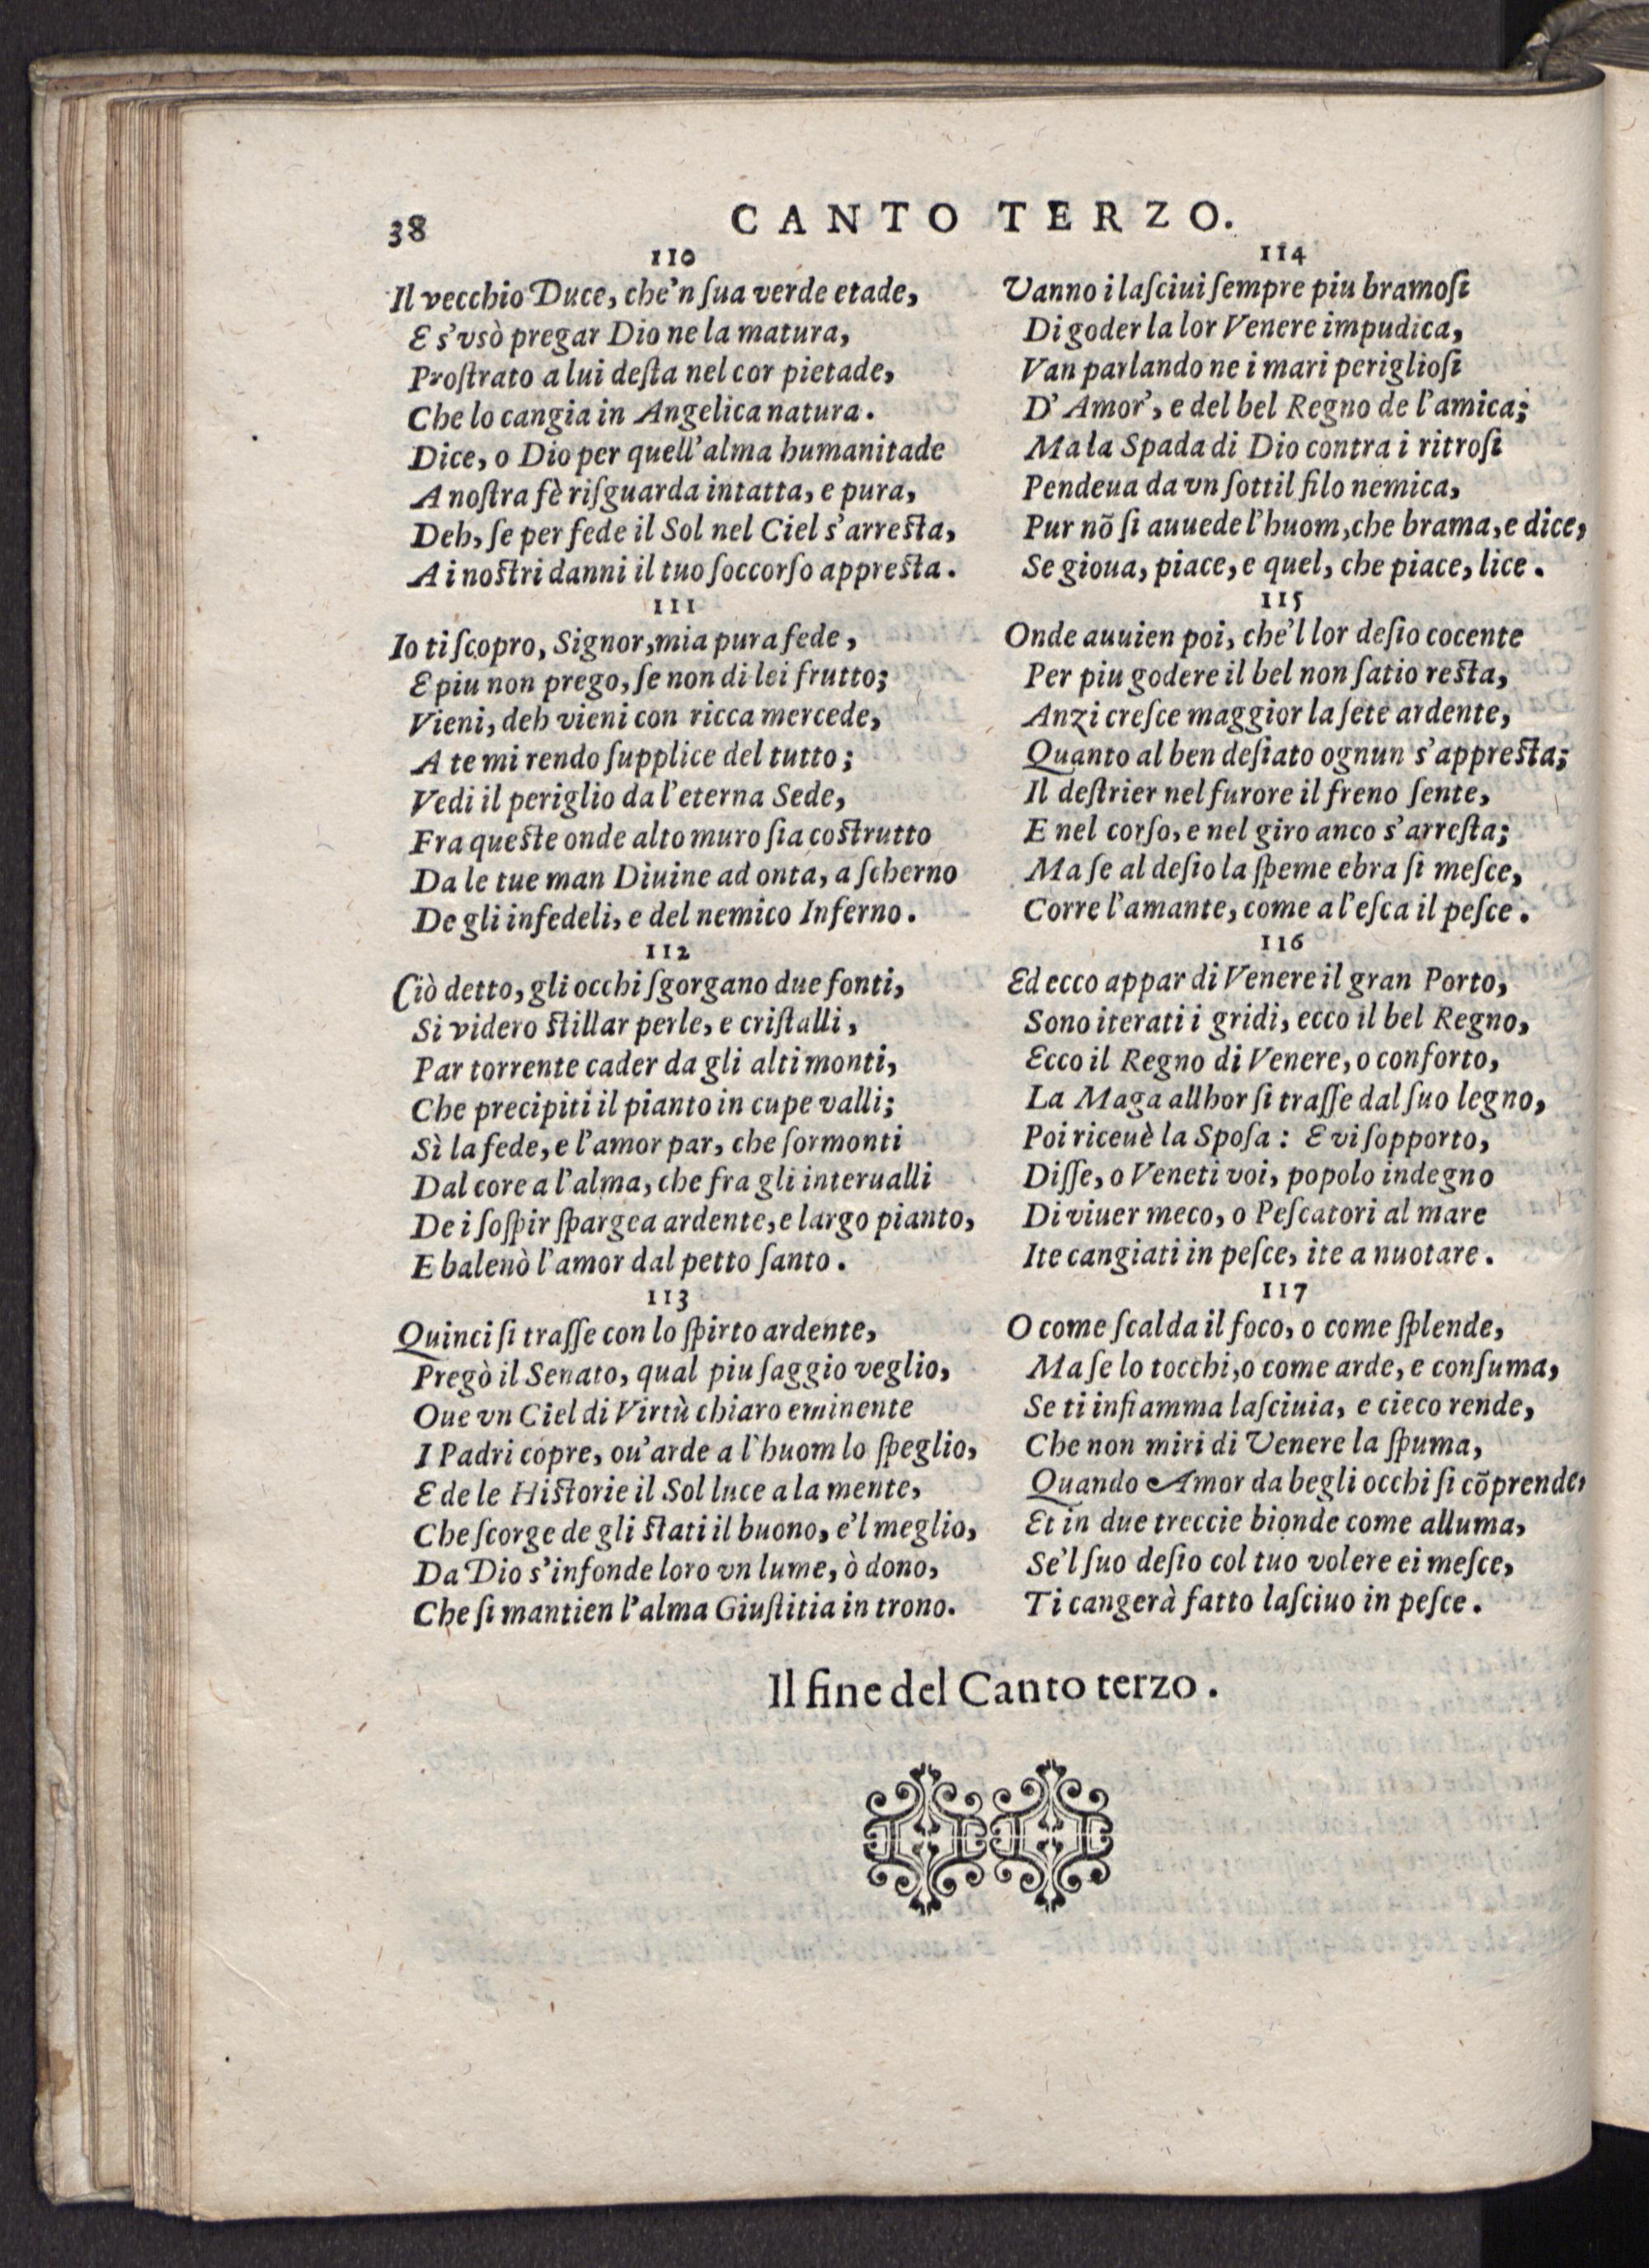 38
CANTO TERZO.
110
Il vecchio Duce, che'n ſua verde etade,
E s'vsò pregar Dio ne la matura,
Proſtrato a lui deſta nel cor pietade,
Che lo cangia in Angelica natura.
Dice, o Dio per quell'alma humanitade
A noſtra fè riſguarda intatta, e pura,
Deh, ſe per fede il Sol nel Ciel s'arreſta,
A i noſtri danni il tuo ſoccorſo appreſta.
111
Io ti ſcopro, Signor, mia pura fede,
E piu non prego, ſe non di lei frutto;
Vieni, deh vieni con ricca mercede,
A te mi rendo ſupplice del tutto;
Vedi il periglio da l'eterna Sede,
Fra queſte onde alto muro ſia coſtrutto
Da le tue man Diuine ad onta, a ſcherno
De gli infedeli, e del nemico Inferno.
112
Ciò detto, gli occhi ſgorgano due fonti,
Si videro ſtillar perle, e criſtalli,
Par torrente cader da gli alti monti,
Che precipiti il pianto in cupe valli;
Sì la fede, e l'amor par, che ſormonti
Dal core a l'alma, che fra gli interualli
De i ſoſpir ſpargea ardente, e largo pianto,
E balenò l'amor dal petto ſanto.
113
Quinci ſi traſſe con lo ſpirto ardente,
Pregò il Senato, qual piu ſaggio veglio,
Oue vn Ciel di Virtù chiaro eminente
I Padri copre, ou'arde a l'huom lo ſpeglio,
E de le Hiſtorie il Sol luce a la mente,
Che ſcorge de gli ſtati il buono, e'l meglio,
Da Dio s'infonde loro vn lume, ò dono,
Che ſi mantien l'alma Giuſtitia in trono.
114
Vanno i laſciui ſempre piu bramoſi
Di goder la lor Venere impudica,
Van parlando ne i mari periglioſi
D'Amor', e del bel Regno de l'amica;
Ma la Spada di Dio contra i ritroſi
Pendeua da vn ſottil filo nemica,
Pur nõ ſi auuede l'huom, che brama, e dice,
Se gioua, piace, e quel, che piace, lice.
115
Onde auuien poi, che'l lor deſio cocente
Per piu godere il bel non ſatio reſta,
Anzi creſce maggior la ſete ardente,
Quanto al ben deſiato ognun s'appreſta;
Il deſtrier nel furore il freno ſente,
E nel corſo, e nel giro anco s'arreſta;
Ma ſe al deſio la ſpeme ebra ſi meſce,
Corre l'amante, come a l'eſca il peſce.
116
Ed ecco appar di Venere il gran Porto,
Sono iterati i gridi, ecco il bel Regno,
Ecco il Regno di Venere, o conforto,
La Maga allhor ſi traſſe dal ſuo legno,
Poi riceuè la Spoſa: E vi ſopporto,
Diſſe, o Veneti voi, popolo indegno
Di viuer meco, o Peſcatori al mare
Ite cangiati in peſce, ite a nuotare.
117
O come ſcalda il foco, o come ſplende,
Ma ſe lo tocchi, o come arde, e conſuma,
Se ti infiamma laſciuia, e cieco rende,
Che non miri di Venere la ſpuma,
Quando Amor da begli occhi ſi cõprende,
Et in due treccie bionde come alluma,
Se'l ſuo deſio col tuo volere ei meſce,
Ti cangerà fatto laſciuo in peſce.
Il fine del Canto terzo.